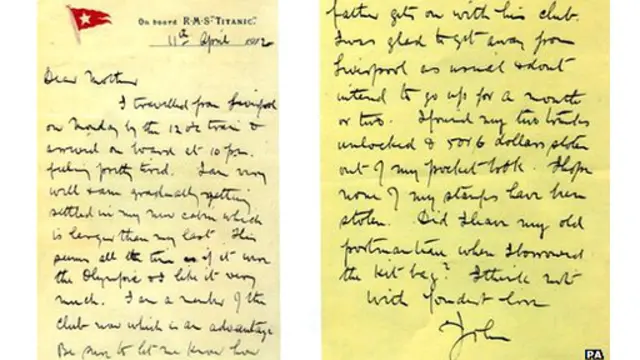 On board R.M.S. "TITANIC".
11th April 1912
Dear Mother
I travelled from Liverpool
on Monday by the 12 o'c train &
arrived on board at 10 pm.
feeling pretty tired. I am very
well & am gradually getting
settled in my new cabin which
is larger than my last. This
seems all the time as if it were
the Olympic & I like it very
much. I am a member of the
club now which is an advantage
Be sure to let me know how
father gets on with his club.
I was glad to get away from
Liverpool as usual & dont
intend to go up for a month
or two. I found my two trunks
unlocked & 5 or 6 dollars stolen
out of my pocket book. I hope
none of my stamps have been
stolen. Did I leave my old
portmanteau when I borrowed
the kit bag? I think not
With fondest love
John
PA